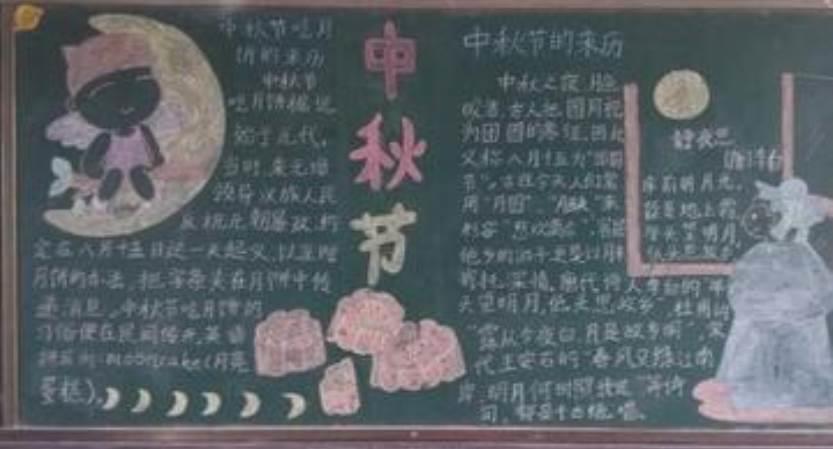 中秋节吃月
饼的来历
中秋节
吃月饼据说
始于元代,
当时,朱元璋
领导汉族人民
反抗元朝暴政,约
定在八月十五日这一天起义,以互赠
月饼的办法,把字条夹在月饼中传
递消息。中秋节吃月饼的
习俗便在民间传开,英语
mooncake(月亮
蛋糕)。
中
秋
节
中秋节的来历
中秋之夜,月色
皎洁,古人把圆月视
为团圆的象征,因此
又称八月十五为"团圆
节"。古往今来,人们常
用"月圆""月缺"来
形容"悲欢离合",
他乡的游子更是以月
寄托深情。唐代诗人李白的"举
头望明月,低头思故乡",杜甫的
"露从今夜白,月是故乡明",宋
代王安石的"春风又绿江南
岸,明月何时照我还"等诗
句,都是千古绝唱。
静夜思
唐李白
床前明月光,
疑是地上霜。
举头望明月,